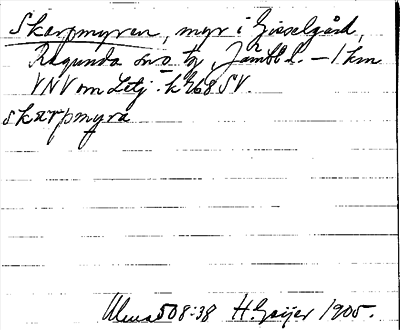 Skarpmyren, myr i Gisselgård,
Ragunda sns o tg, Jämtl. l. – 1 km
VNV om Letj. k 768 SV.
skarpmyra
508:38 H. Geijer 1905.